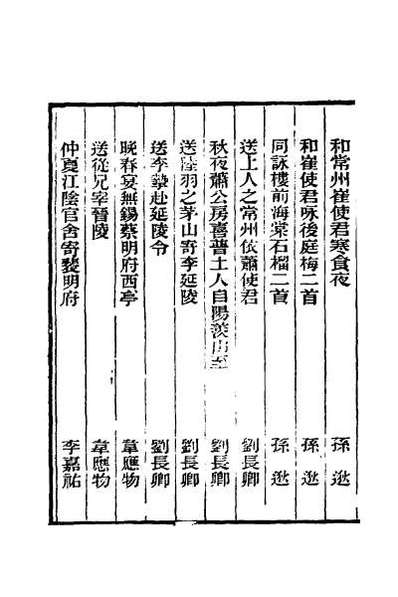 和常州崔使君寒食夜 孫逖
和崔使君咏後庭梅二首 孫逖
同詠樓前海棠石榴二首 孫逖
送上人之常州依蕭使君 劉長卿
秋夜蕭公房喜普上人自陽羨山至 劉長卿
送陸羽之茅山寄李延陵 劉長卿
送李摯赴延陵令 劉長卿
晚春宴無錫蔡明府西亭 韋應物
送從兄宰晉陵 韋應物
仲夏江陰官舍寄裴明府 李嘉祐